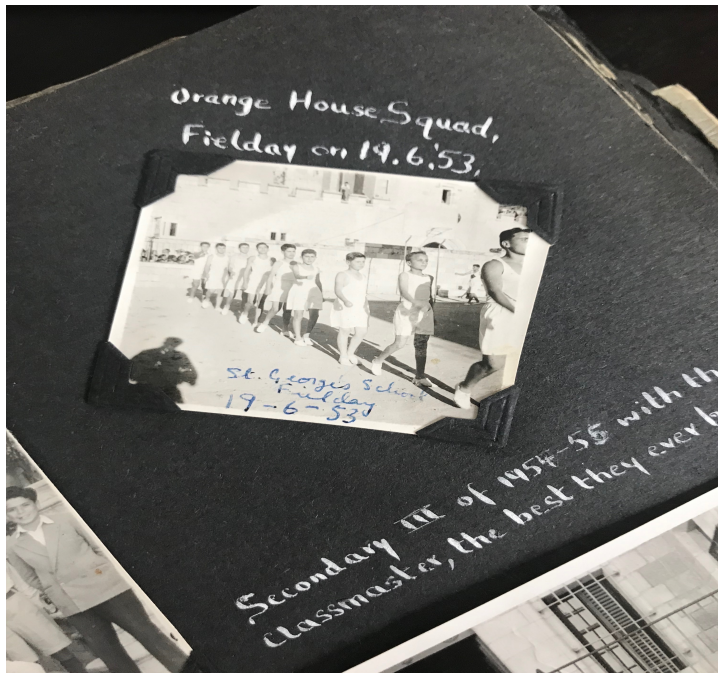 Orange House Squad,
Fielday on 19.6.'53.
St. George's School
Fielday
19-6-53
Secondary III of 1954-55 with th
classmaster, the best they ever b